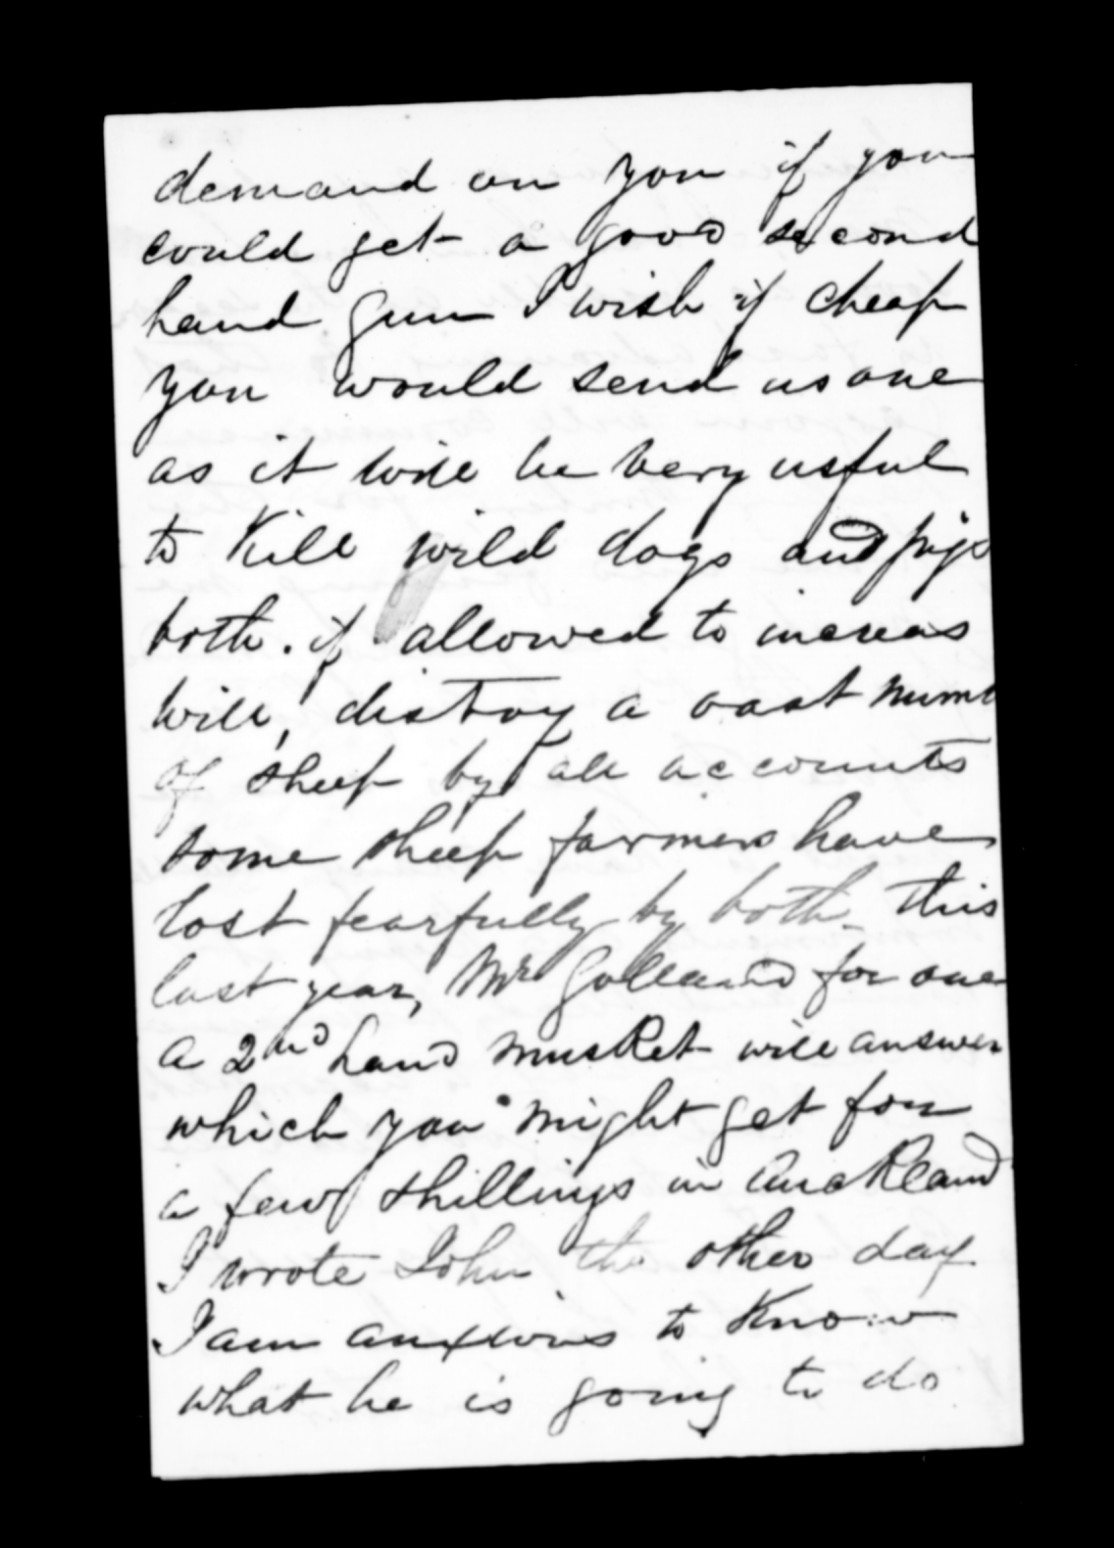 demand on you if you
could get a good second
hand gun I wish if cheap
you would send us one
as it will be very usful
to kill wild dogs and pigs
both. if allowed to increas
will, distroy a vast numb
of sheep by all accounts
some sheep farmers have
lost fearfully by both this
last year, Mr Golland for one
a 2nd hand musket will answer
which you might get for
a few shillings in Auckland
I wrote John the other day
I am anxious to know
what he is going to do